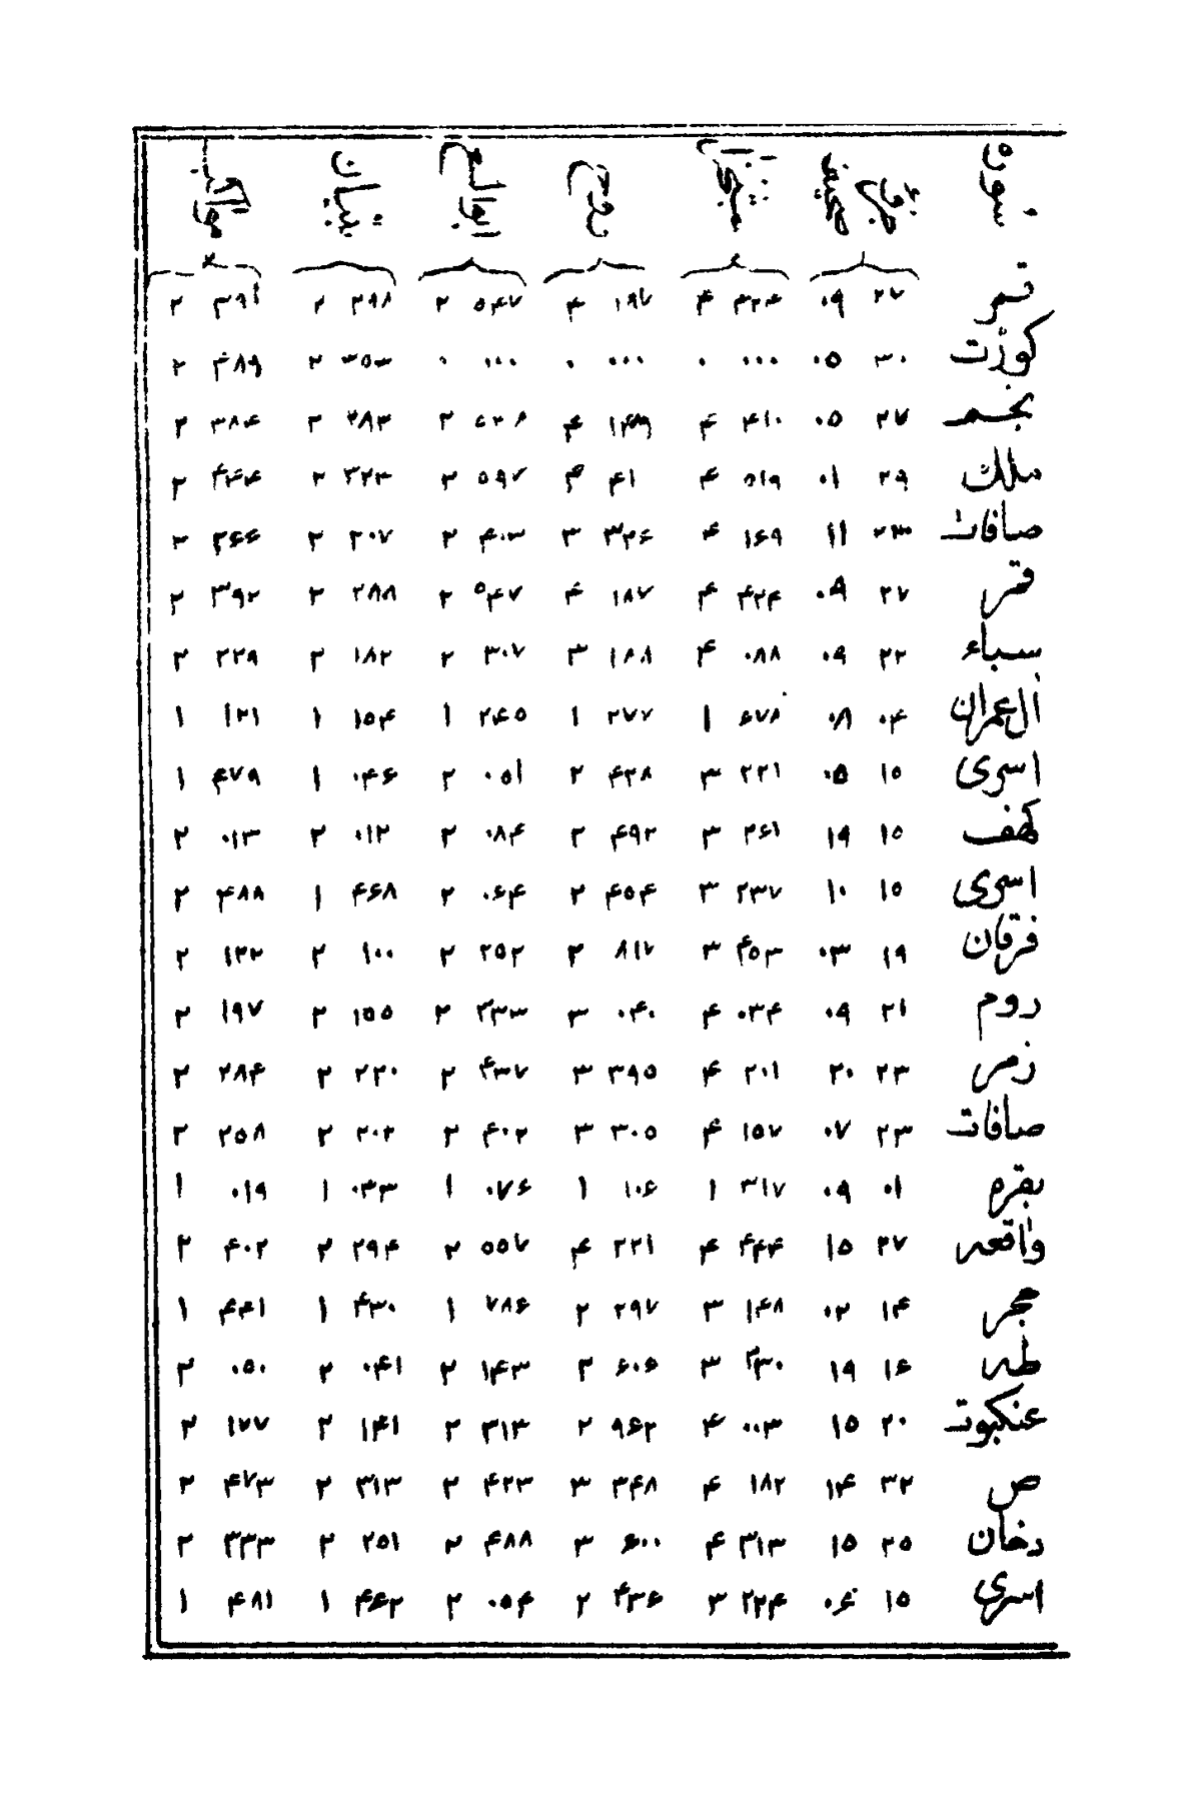 سوره جزؤ صحيفه روح ابوالسع تبيان مواكب
قمر ٢٧ ٠٩ ٤٢٤ ٤ ١٨٧ ٤ ٥٤٧ ٢ ٢٩٨ ٢ ٣٩١ ٢
كورت ٣٠ ٠٥ ٠٠٠ ٠ ٠٠٠ ٠ ٠٠٠ ٠ ٣٥٣ ٢ ٤٨٩ ٢
نجم ٢٧ ٠٥ ٤١٠ ٤ ١٤٩ ٤ ٢ ٢٨٣ ٢ ٣٨٤ ٢
ملك ٢٩ ٠١ ٥١٩ ٤ ٤١ ٤ ٥٩٧ ٢ ٣٢٣ ٢ ٤٤٤ ٢
صافات ٢٣ ١١ ١٦٩ ٤ ٣٢٦ ٣ ٤٠٣ ٢ ٢٠٧ ٢ ٢٦٦ ٢
قمر ٢٧ ٠٩ ٤٢٤ ٤ ١٨٧ ٤ ٥٤٧ ٢ ٢٨٨ ٢ ٣٩٢ ٢
سباء ٢٢ ٠٩ ٠٨٨ ٤ ١٨٨ ٣ ٣٠٧ ٢ ١٨٢ ٢ ٢٢٩ ٢
ال عمران ٠٤ ٠٨ ٦٧٨ ١ ٢٧٧ ١ ٢٤٥ ١ ١٥٤ ١ ١٢١ ١
اسرى ١٥ ٠٥ ٢٢١ ٣ ٤٢٨ ٢ ٠٥١ ٢ ٠٤٦ ١ ٤٧٩ ١
كهف ١٥ ١٩ ٢٦١ ٣ ٤٩٢ ٢ ٠٨٤ ٢ ٠١٢ ٢ ٠١٣ ٢
اسرى ١٥ ١٠ ٢٣٧ ٣ ٤٥٤ ٢ ٠٦٤ ٢ ٤٦٨ ١ ٤٨٨ ٢
فرقان ١٩ ٠٣ ٤٥٣ ٣ ٨١٧ ٢ ٢٥٢ ٢ ١٠٠ ٢ ١٢٢ ٢
روم ٢١ ٠٩ ٠٣٤ ٤ ٠٤٠ ٣ ٣٣٣ ٢ ١٥٥ ٢ ١٩٧ ٢
زمر ٢٣ ٢٠ ٢٠١ ٤ ٣٩٥ ٣ ٤٣٧ ٢ ٢٢٠ ٢ ٢٨٤ ٢
صافات ٢٣ ٠٧ ١٥٧ ٤ ٣٠٥ ٣ ٤٠٢ ٢ ٢٠٢ ٢ ٢٥٨ ٢
بقره ٠١ ٠٩ ٣١٧ ١ ١٠٦ ١ ٠٧٦ ١ ٠٣٣ ١ ٠١٩ ١
واقعه ٢٧ ١٥ ٤٤٤ ٤ ٢٢١ ٤ ٥٥٧ ٢ ٢٩٤ ٢ ٤٠٢ ٢
حجر ١٤ ٠٢ ١٤٨ ٣ ٢٩٧ ٢ ٧٨٦ ١ ٤٣٠ ١ ٤٤١ ١
طه ١٦ ١٩ ٣٣٠ ٣ ٦٠٦ ٢ ١٤٣ ٢ ٠٤١ ٢ ٠٥٠ ٢
عنكبوت ٢٠ ١٥ ٠٠٣ ٤ ٩٦٢ ٢ ٣١٣ ٢ ١٤١ ٢ ١٧٧ ٢
ص ٣٢ ١٤ ١٨٢ ٤ ٣٤٨ ٣ ٤٢٣ ٢ ٣١٣ ٢ ٤٧٣ ٢
دخان ٢٥ ١٥ ٣١٣ ٤ ٦٠٠ ٣ ٤٨٨ ٢ ٢٥١ ٢ ٣٣٣ ٢
اسرى ١٥ ٠٦ ٢٢٤ ٣ ٤٣٦ ٢ ٠٥٤ ٢ ٤٦٢ ١ ٤٨١ ١